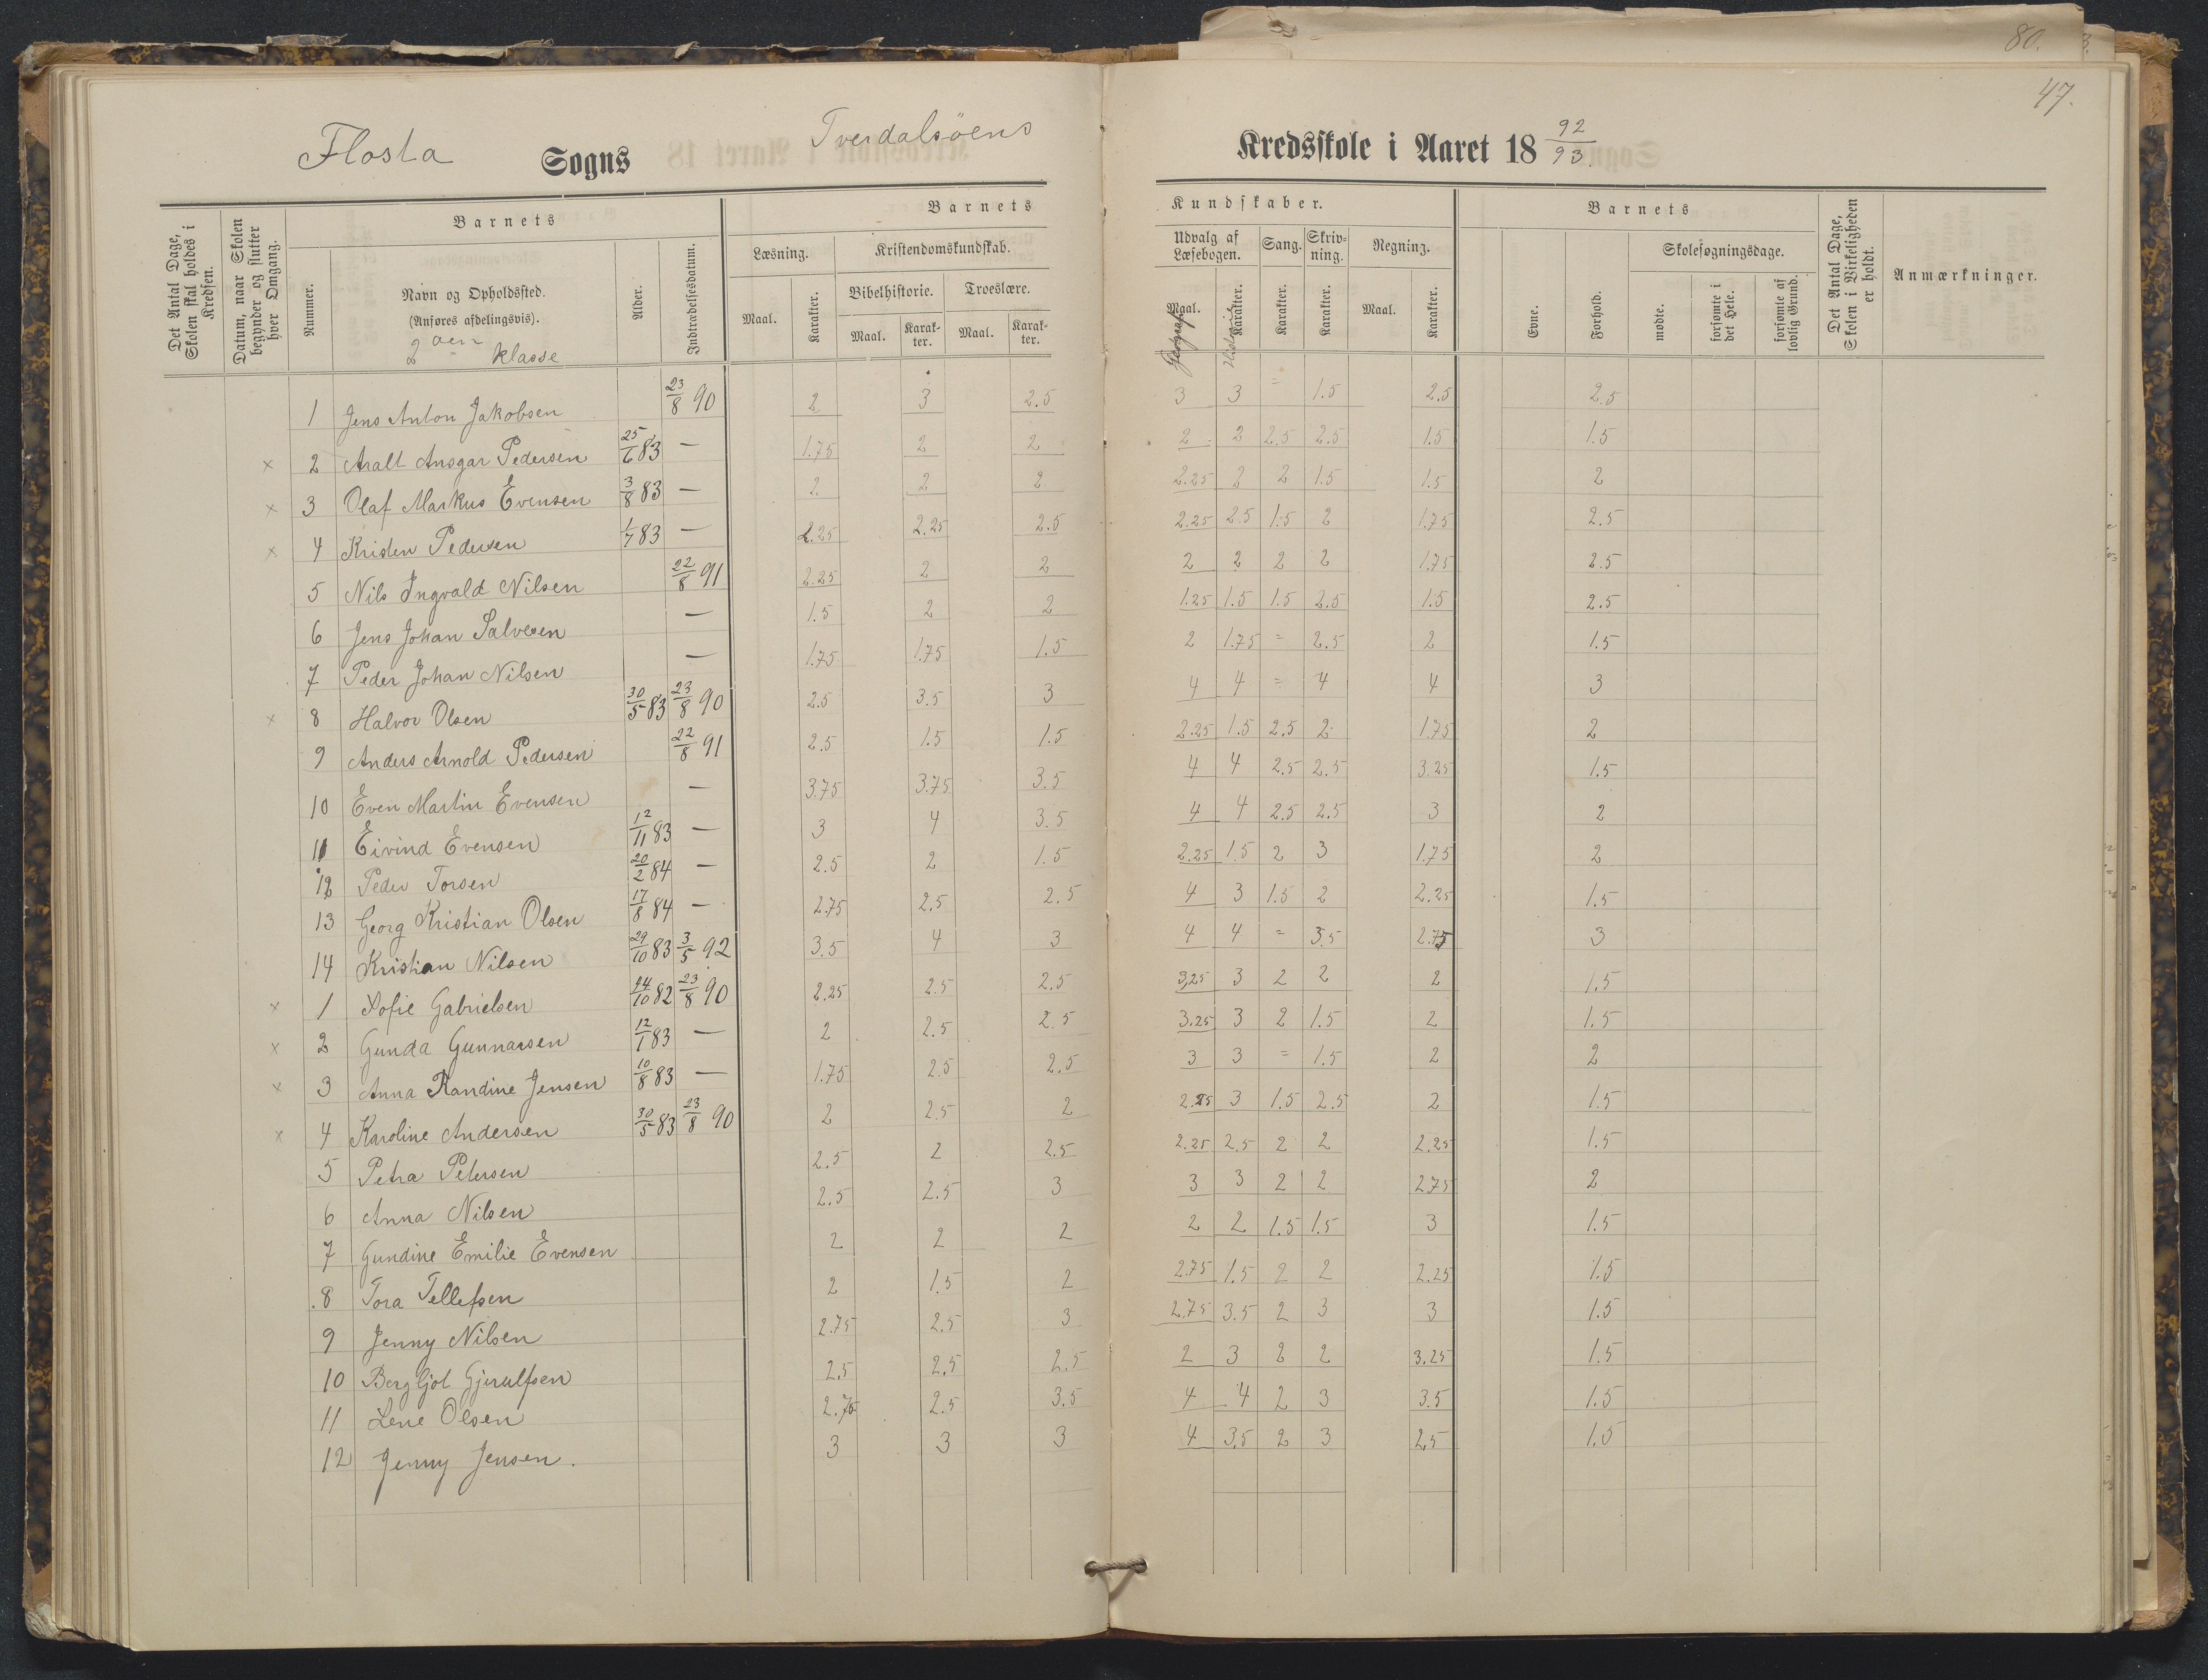 80.
47.
Flosta Sogns Tverdalsöens Kredsskole i Aaret 18 92/93.
Det Antal Dage, Skolen skal holdes i Kredsen.
Datum, naar Skolen begynder og slutter hver Omgang.
Barnets
Nummer.
Navn og Opholdssted.
(Anføres afdelingsvis).
2den klasse
Alder.
Indtrædelsesdatum.
Barnets Kundskaber.
Læsning. Maal. Karakter.
Kristendomskundskab.
Bibelhistorie. Maal. Karakter.
Troeslære. Maal. Karakter.
Udvalg af Læsebogen. Maal. Karakter.
Sang. Karakter.
Skrivning. Karakter.
Regning. Maal. Karakter.
Barnets
Evne.
Forhold.
Skolesøgningsdage.
mødte.
forsømte i det Hele.
forsømte af lovlig Grund.
Det Antal Dage, Skolen i Virkeligheden er holdt.
Anmærkninger.
1 Jens Anton Jakobsen 23/8 90 2 3 2.5 3 3 = 1.5 2.5 2.5
x 2 Aralt Ansgar Pedersen 25/6 83 — 1.75 2 2 2 2 2.5 2.5 1.5 1.5
x 3 Olaf Markus Evensen 3/8 83 — 2 2 2 2.25 2 2 1.5 1.5 2
x 4 Kristen Pedersen 1/7 83 — 2.25 2.25 2.5 2.25 2.5 1.5 2 1.75 2.5
5 Nils Ingvald Nilsen 22/8 91 2.25 2 2 2 2 2 2 1.75 2.5
6 Jens Johan Salvesen — 1.5 2 2 1.25 1.5 1.5 2.5 1.5 2.5
7 Peder Johan Nilsen — 1.75 1.75 1.5 2 1.75 = 2.5 2 1.5
x 8 Halvor Olsen 30/5 83 23/8 90 2.5 3.5 3 4 4 = 4 4 3
9 Anders Arnold Pedersen 22/8 91 2.5 1.5 1.5 2.25 1.5 2.5 2 1.75 2
10 Even Martin Evensen — 3.75 3.75 3.5 4 4 2.5 2.5 3.25 1.5
11 Eivind Evensen 12/11 83 — 3 4 3.5 4 4 2.5 2.5 3 2
12 Peder Torsen 20/2 84 — 2.5 2 1.5 2.25 1.5 2 3 1.75 2
13 Georg Kristian Olsen 17/8 84 — 2.75 2.5 2.5 4 3 1.5 2 2.25 1.5
14 Kristian Nilsen 29/10 83 3/5 92 3.5 4 3 4 4 = 3.5 2.75 3
x 1 Sofie Gabrielsen 24/10 82 23/8 90 2.25 2.5 2.5 3,25 3 2 2 2 1.5
x 2 Gunda Gunnarsen 12/1 83 — 2 2.5 2.5 3.25 3 2 1.5 2 1.5
x 3 Anna Randine Jensen 10/8 83 — 1.75 2.5 2.5 3 3 = 1.5 2 2
x 4 Karoline Andersen 30/5 83 23/8 90 2 2.5 2 2.25 3 1.5 2.5 2 1.5
5 Petra Petersen 2.5 2 2.5 2.25 2.5 2 2 2.25 1.5
6 Anna Nilsen 2.5 2.5 3 3 3 2 2 2.75 2
7 Gundine Emilie Evensen 2 2 2 2 2 1.5 1.5 3 1.5
8 Tora Tellefsen 2 1.5 2 2.75 1.5 2 2 2.25 1.5
9 Jenny Nilsen 2.75 2.5 3 2.75 3.5 2 3 3 1.5
10 Bergljot Gjerulfsen 2.5 2.5 2.5 2 3 2 2 3.25 1.5
11 Lene Olsen 2.75 2.5 3.5 4 4 2 3 3.5 1.5
12 Jenny Jensen. 3 3 3 4 3.5 2 3 2.5 1.5